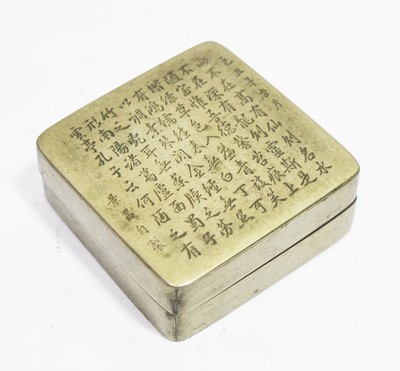 乙丑月
山不在高有仙則名水
不在深有龍則靈斯是
陋室惟吾德馨苔痕上
堦綠草色入簾青談笑
有鴻儒往來無白丁可
以調素琴閱金經無絲
竹之亂耳無案牘之勞
形南陽諸葛廬西蜀子
雲亭孔子云何陋之有
景自製